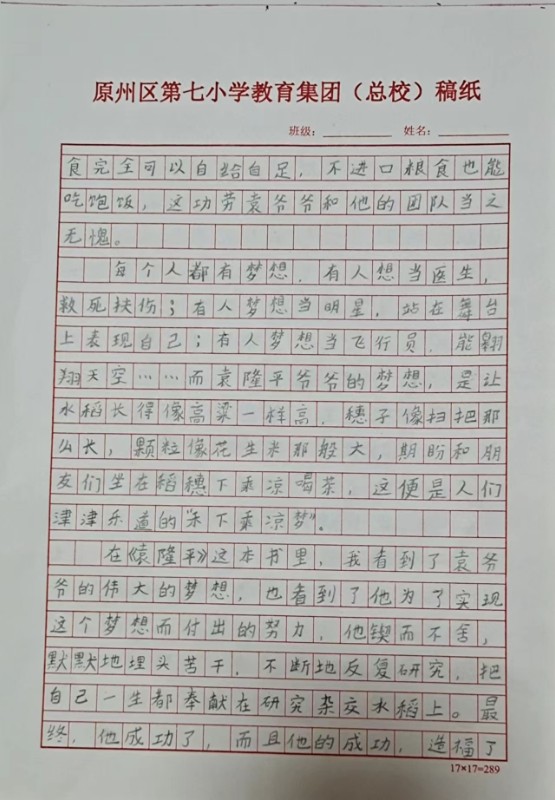 原州区第七小学教育集团（总校）稿纸
班级： 姓名：
食完全可以自给自足，不进口粮食也能
吃饱饭，这功劳袁爷爷和他的团队当之
无愧。
每个人都有梦想，有人想当医生，
救死扶伤；有人梦想当明星，站在舞台
上表现自己；有人梦想当飞行员，能翱
翔天空……而袁隆平爷爷的梦想，是让
水稻长得像高粱一样高，穗子像扫把那
么长，颗粒像花生米那般大，期盼和朋
友们坐在稻穗下乘凉喝茶，这便是人们
津津乐道的“禾下乘凉梦”。
在《袁隆平》这本书里，我看到了袁爷
爷的伟大的梦想，也看到了他为了实现
这个梦想而付出的努力，他锲而不舍，
默默地埋头苦干，不断地反复研究，把
自己一生都奉献在研究杂交水稻上。最
终，他成功了，而且他的成功，造福了
17×17=289